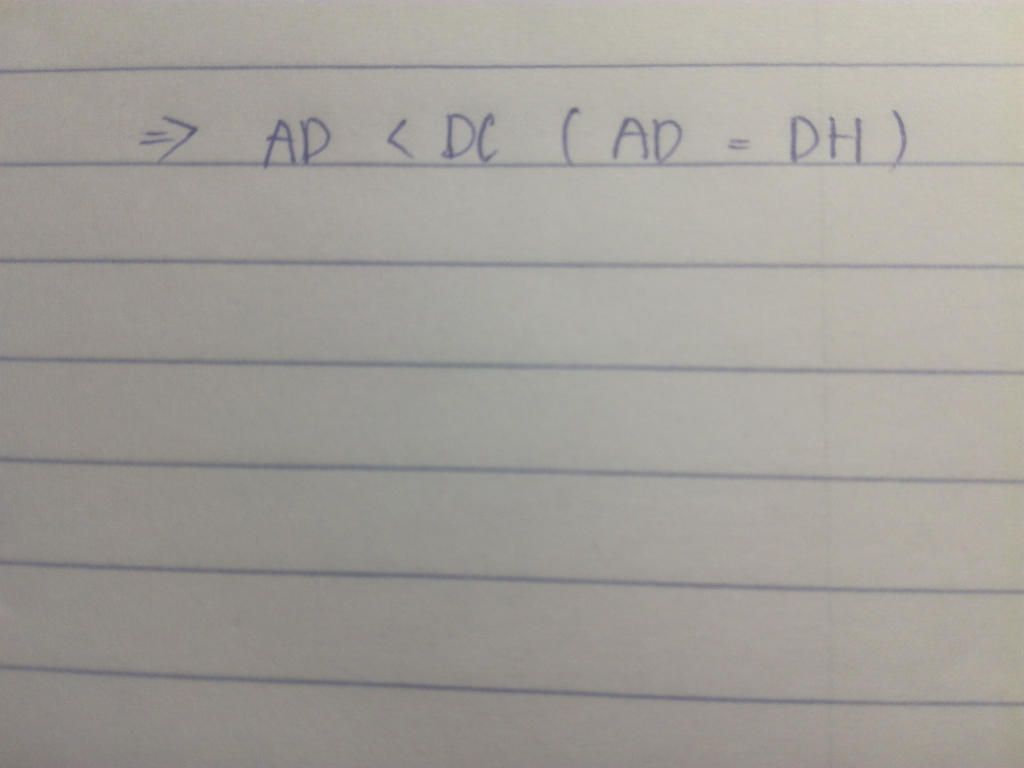 ⇒ AD < DC ( AD = DH )